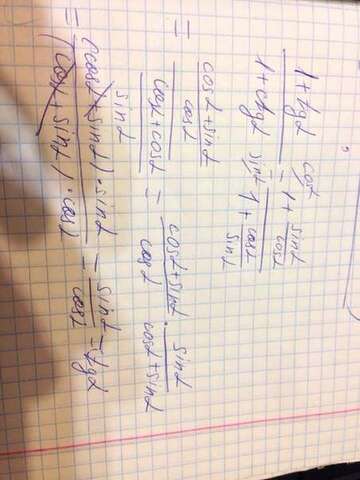 (1+tgα)/(1+ctgα) = (1 + sinα/cosα)/(1 + cosα/sinα) =
= ((cosα+sinα)/cosα)/((cosα+cosα)/sinα) = (cosα+sinα)/cosα · sinα/(cosα+sinα)
= ((cosα+sinα)·sinα)/((cosα+sinα)·cosα) = sinα/cosα = tgα